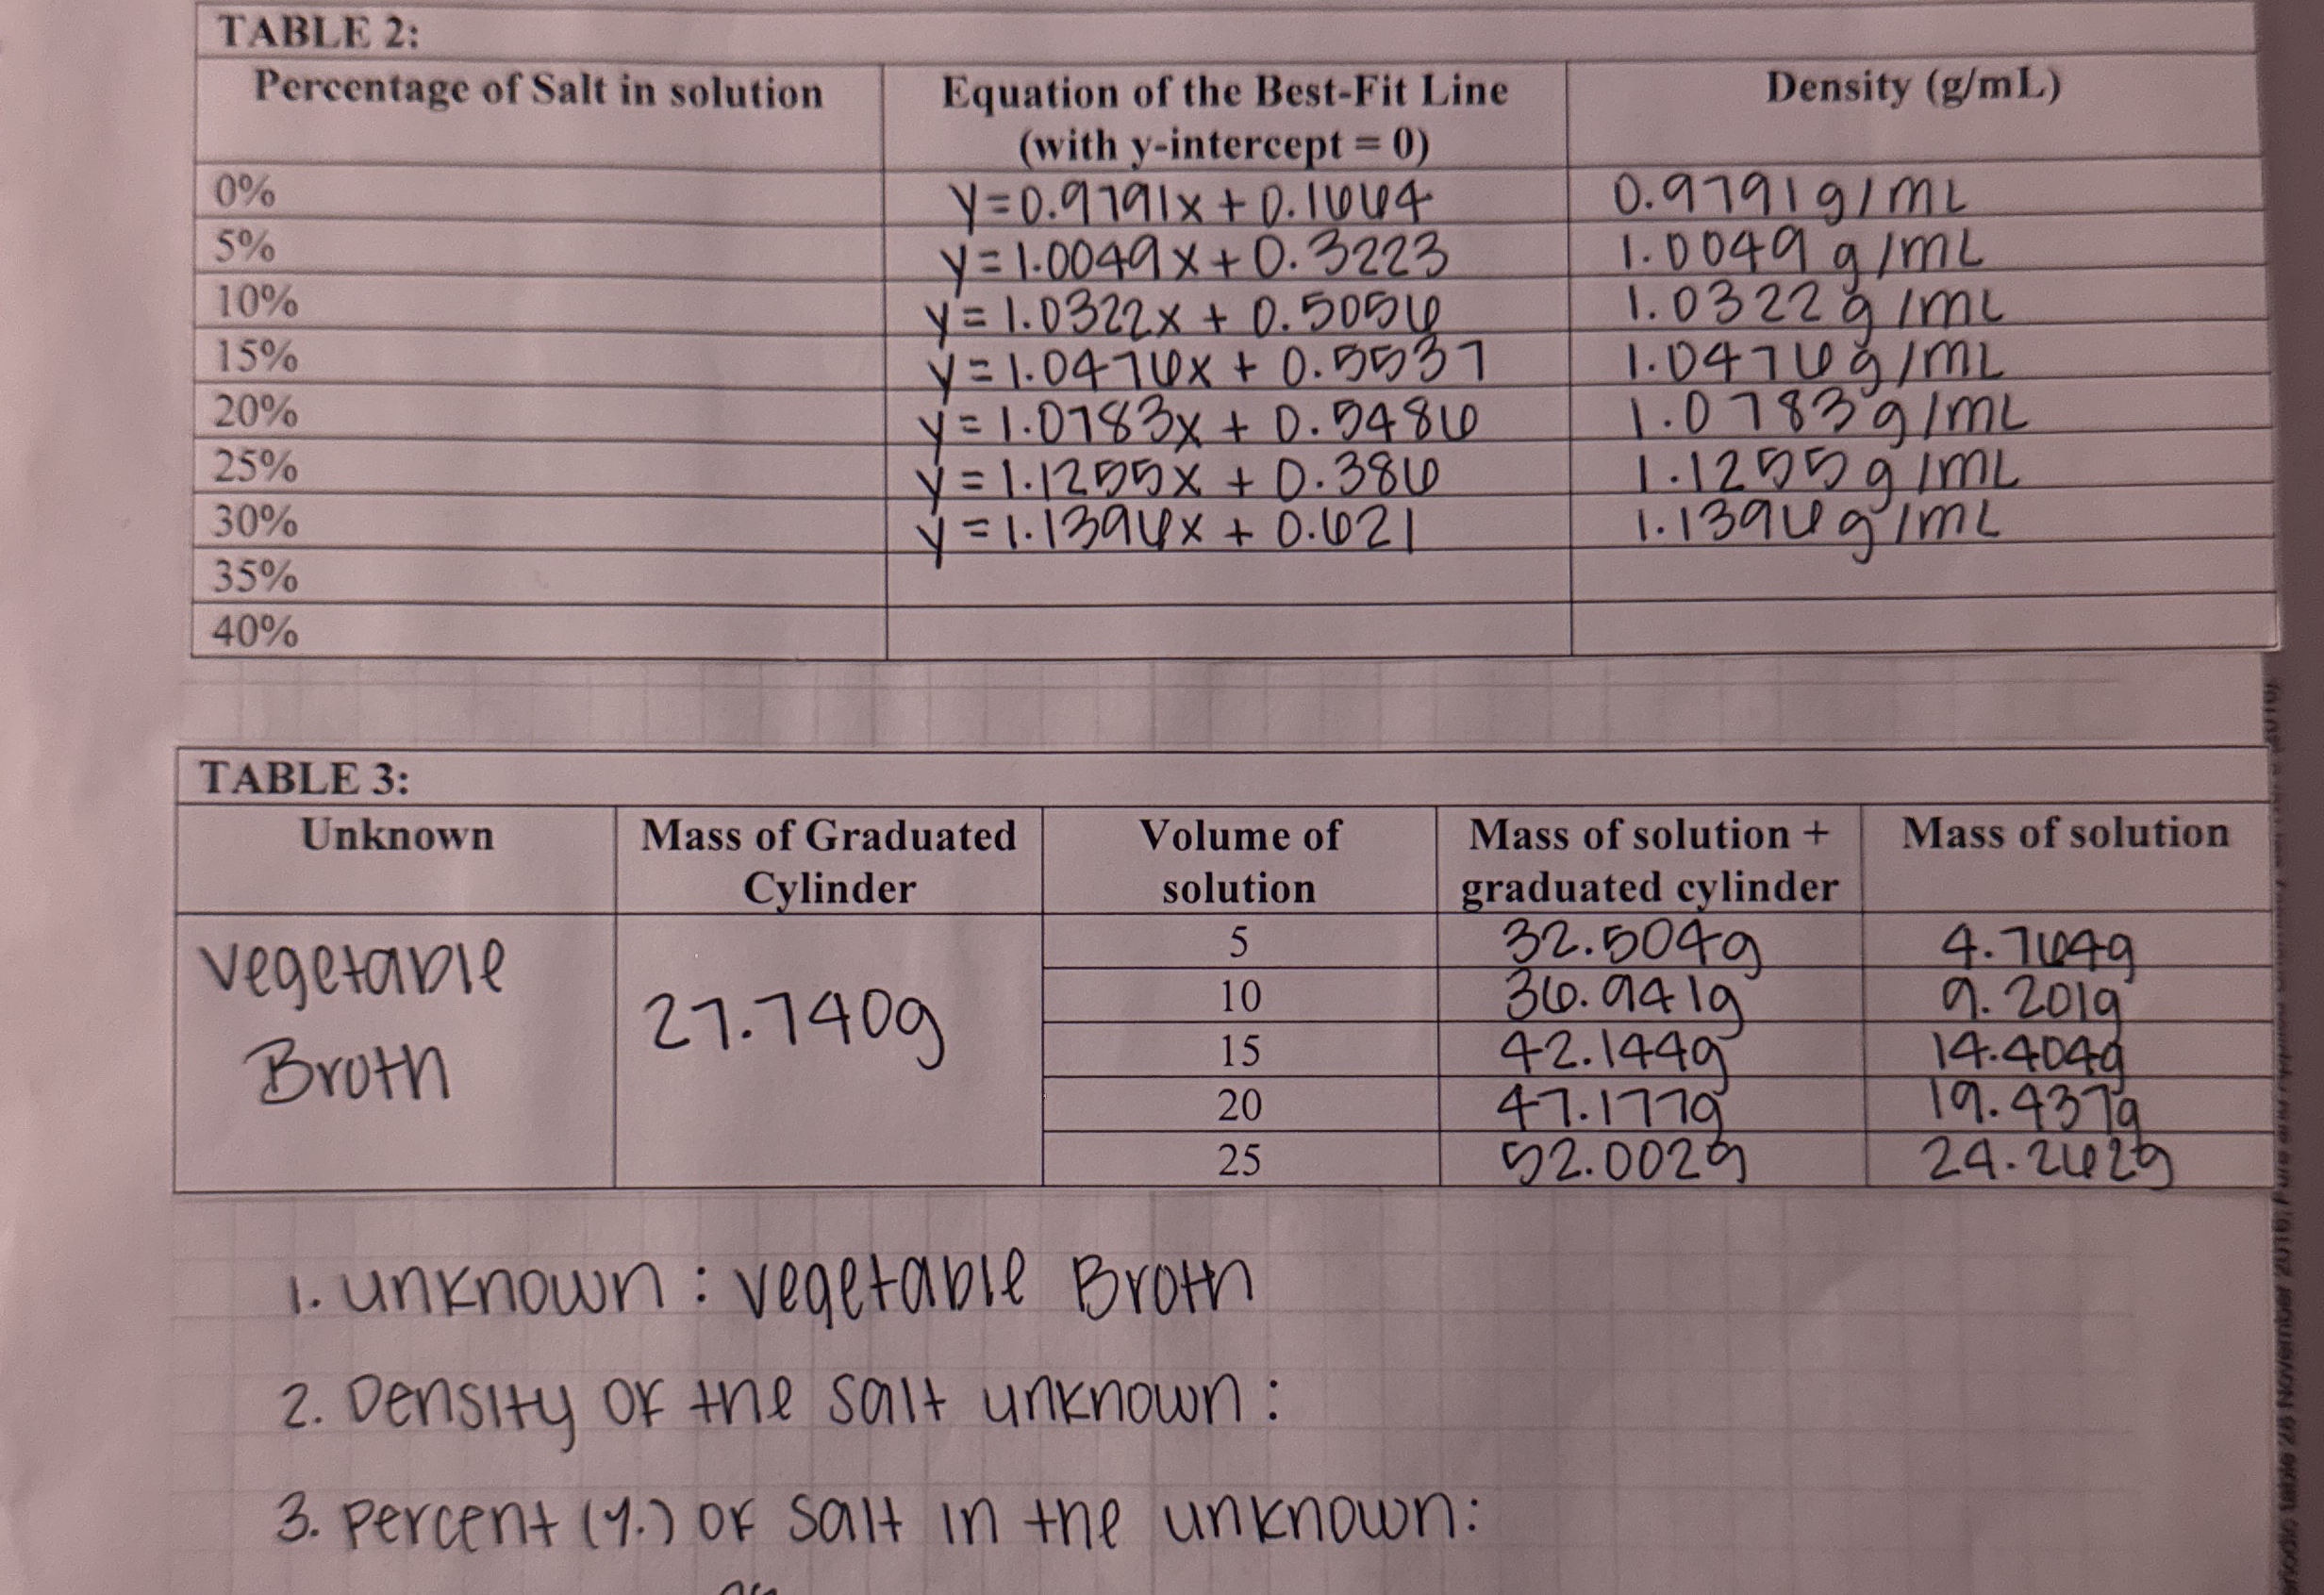 TABLE 2:
Percentage of Salt in solution Equation of the Best-Fit Line (with y-intercept = 0) Density (g/mL)
0% y=0.9791x+0.1664 0.9791g/mL
5% y=1.0049x+0.3223 1.0049 g/mL
10% y=1.0322x + 0.5056 1.0322g/mL
15% y=1.0476x + 0.5537 1.0476g/mL
20% y=1.0783x + 0.5486 1.0783g/mL
25% y=1.1255x + 0.386 1.1255g/mL
30% y=1.1396x + 0.621 1.1396g/mL
35%
40%
TABLE 3:
Unknown Mass of Graduated Cylinder Volume of solution Mass of solution + graduated cylinder Mass of solution
Vegetable Broth 27.740g 5 32.504g 4.764g
10 36.941g 9.201g
15 42.144g 14.404g
20 47.177g 19.437g
25 52.002g 24.262g
1. unknown : vegetable Broth
2. Density of the salt unknown :
3. percent (%) of salt in the unknown: